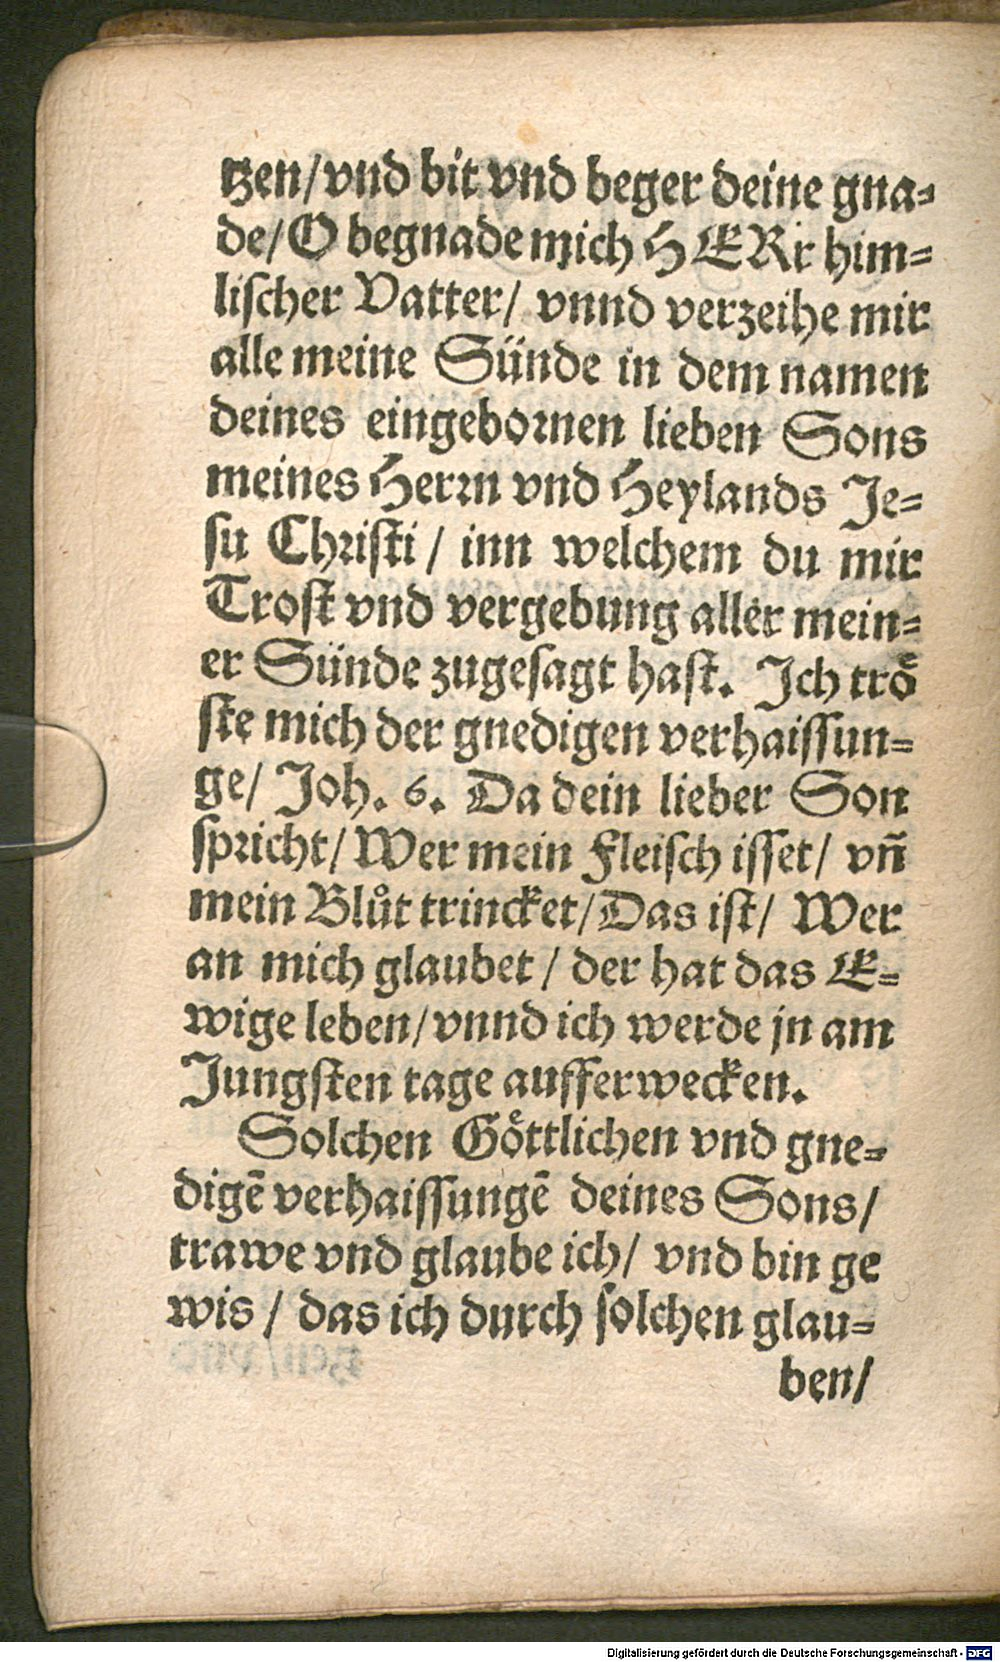 tzen/vnd bit vnd beger deine gna-
de/O begnade mich HERr him-
lischer Vatter/ vnnd verzeihe mir
alle meine Sünde in dem namen
deines eingebornen lieben Sons
meines Herrn vnd Heylands Je-
su Christi / inn welchem du mir
Trost vnd vergebung aller mein-
er Sünde zugesagt hast. Ich troͤ
ste mich der gnedigen verhaissun-
ge/ Joh. 6. Da dein lieber Son
spricht/ Wer mein Fleisch isset/ vñ
mein Blůt trincket/Das ist/ Wer
an mich glaubet / der hat das E-
wige leben/vnnd ich werde jn am
Jungsten tage aufferwecken.
Solchen Goͤttlichen vnd gne-
digẽ verhaissungẽ deines Sons/
trawe vnd glaube ich/ vnd bin ge
wis / das ich durch solchen glau-
ben/
Digitalisierung gefördert durch die Deutsche Forschungsgemeinschaft - DFG